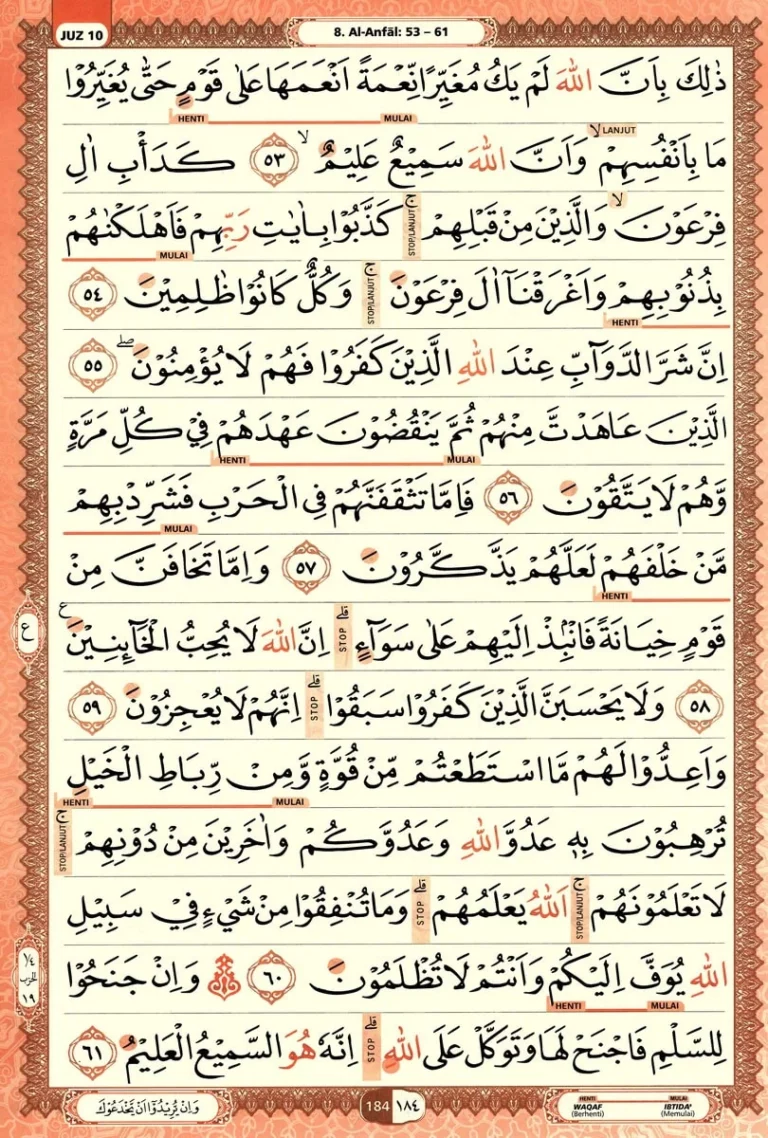 JUZ 10
8. Al-Anfāl: 53 – 61
ذٰلِكَ بِاَنَّ اللّٰهَ لَمْ يَكُ مُغَيِّرًا نِّعْمَةً اَنْعَمَهَا عَلٰى قَوْمٍ حَتّٰى يُغَيِّرُوْا
HENTI MULAI
LANJUT
مَا بِاَنْفُسِهِمْۙ وَاَنَّ اللّٰهَ سَمِيْعٌ عَلِيْمٌۙ ٥٣ كَدَأْبِ اٰلِ
فِرْعَوْنَۙ وَالَّذِيْنَ مِنْ قَبْلِهِمْۚ STOP/LANJUT كَذَّبُوْا بِاٰيٰتِ رَبِّهِمْ فَاَهْلَكْنٰهُمْ
MULAI
بِذُنُوْبِهِمْ وَاَغْرَقْنَآ اٰلَ فِرْعَوْنَۚ STOP/LANJUT وَكُلٌّ كَانُوْا ظٰلِمِيْنَ ٥٤
HENTI
اِنَّ شَرَّ الدَّوَاۤبِّ عِنْدَ اللّٰهِ الَّذِيْنَ كَفَرُوْا فَهُمْ لَا يُؤْمِنُوْنَۖ ٥٥
الَّذِيْنَ عَاهَدْتَّ مِنْهُمْ ثُمَّ يَنْقُضُوْنَ عَهْدَهُمْ فِيْ كُلِّ مَرَّةٍ
HENTI MULAI
وَّهُمْ لَا يَتَّقُوْنَ ٥٦ فَاِمَّا تَثْقَفَنَّهُمْ فِى الْحَرْبِ فَشَرِّدْ بِهِمْ
MULAI
مَّنْ خَلْفَهُمْ لَعَلَّهُمْ يَذَّكَّرُوْنَ ٥٧ وَاِمَّا تَخَافَنَّ مِنْ
HENTI
قَوْمٍ خِيَانَةً فَانْۢبِذْ اِلَيْهِمْ عَلٰى سَوَاۤءٍۗ STOP اِنَّ اللّٰهَ لَا يُحِبُّ الْخَاۤىِٕنِيْنَ ع
ع
٥٨ وَلَا يَحْسَبَنَّ الَّذِيْنَ كَفَرُوْا سَبَقُوْاۗ STOP اِنَّهُمْ لَا يُعْجِزُوْنَ ٥٩
وَاَعِدُّوْا لَهُمْ مَّا اسْتَطَعْتُمْ مِّنْ قُوَّةٍ وَّمِنْ رِّبَاطِ الْخَيْلِ
HENTI MULAI
تُرْهِبُوْنَ بِهٖ عَدُوَّ اللّٰهِ وَعَدُوَّكُمْ وَاٰخَرِيْنَ مِنْ دُوْنِهِمْۚ STOP/LANJUT
لَا تَعْلَمُوْنَهُمْۚ STOP/LANJUT اَللّٰهُ يَعْلَمُهُمْۗ STOP وَمَا تُنْفِقُوْا مِنْ شَيْءٍ فِيْ سَبِيْلِ
اللّٰهِ يُوَفَّ اِلَيْكُمْ وَاَنْتُمْ لَا تُظْلَمُوْنَ ٦٠ ۞ وَاِنْ جَنَحُوْا
HENTI MULAI
١/٤
الحزب
١٩
لِلسَّلْمِ فَاجْنَحْ لَهَا وَتَوَكَّلْ عَلَى اللّٰهِۗ STOP اِنَّهٗ هُوَ السَّمِيْعُ الْعَلِيْمُ ٦١
وَاِنْ يُّرِيْدُوْٓا اَنْ يَّخْدَعُوْكَ
184 ١٨٤
HENTI MULAI
WAQAF IBTIDA'
(Berhenti) (Memulai)